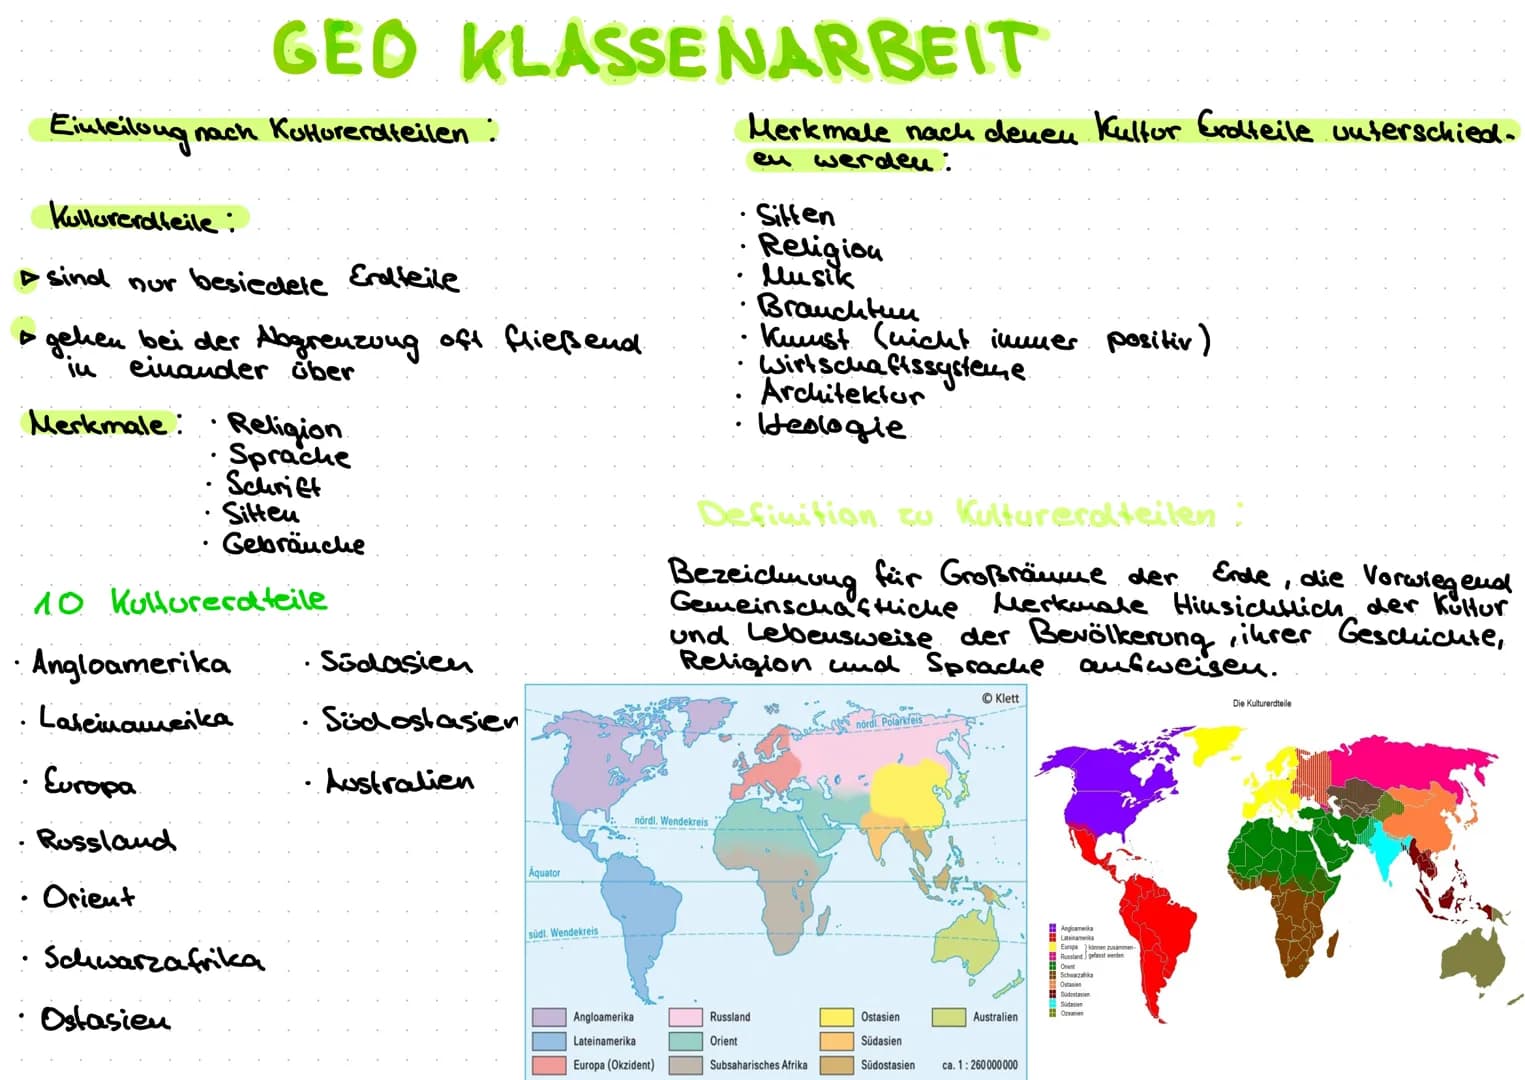 GEO KLASSENARBEIT
Einteilung nach Kulturerdteilen :
Kulturerdteile :
▷ sind nur besiedete Erdteile
▷ gehen bei der Abgrenzung oft fließend
in einander über
Merkmale : · Religion
· Sprache
· Schrift
· Sitten
· Gebräuche
10 Kulturerdteile
· Angloamerika
· Lateinamerika
· Europa
· Russland
· Orient
· Schwarzafrika
· Ostasien
· Südasien
· Südostasien
· Australien
Merkmale nach denen Kultur Erdteile unterschied-
en werden :
· Sitten
· Religion
· Musik
· Brauchtum
· Kunst (nicht immer positiv)
· Wirtschaftssysteme
· Architektur
· Ideologie
Definition zu Kulturerdteilen :
Bezeichnung für Großräume der Erde, die Vorwiegend
Gemeinschaftliche Merkmale Hinsichtlich der Kultur
und Lebensweise der Bevölkerung, ihrer Geschichte,
Religion und Sprache aufweisen.
© Klett
nördl. Polarkreis
nördl. Wendekreis
Äquator
südl. Wendekreis
Angloamerika
Lateinamerika
Europa (Okzident)
Russland
Orient
Subsaharisches Afrika
Ostasien
Südasien
Südostasien
Australien
ca. 1 : 260 000 000
Die Kulturerdteile
Angloamerika
Lateinamerika
Europa } können zusammen-
Russland } gefasst werden
Orient
Schwarzafrika
Ostasien
Südostasien
Südasien
Ozeanien